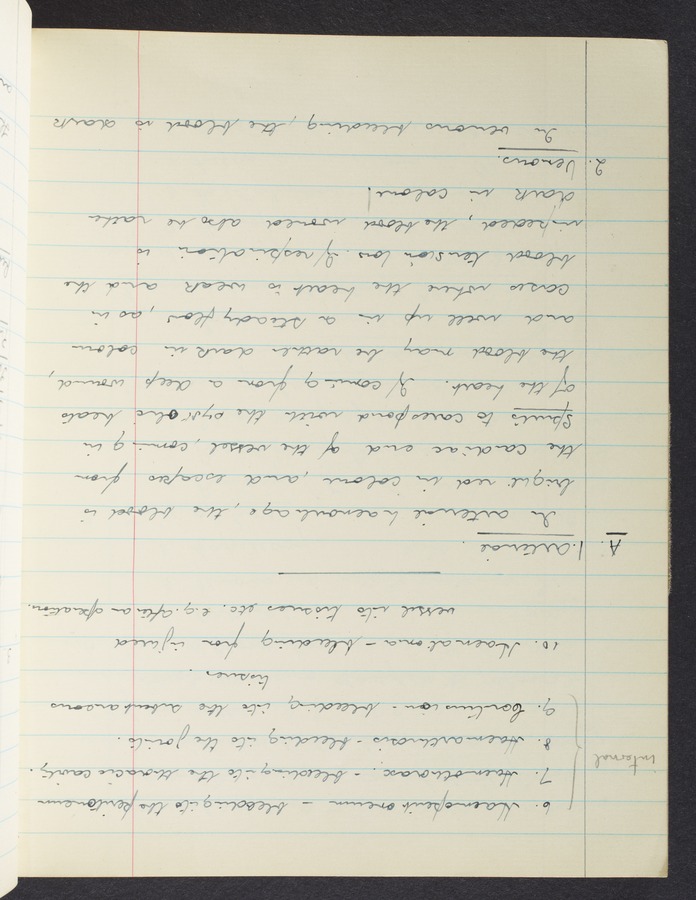 internal
6. Haemoperitoneum - bleeding into the peritoneum
7. Haemothorax. - bleeding into the thoracic cavity.
8. Haemarthrosis - bleeding into the joints.
9. Contusion - bleeding into the subcutaneous
tissues.
10. Haematoma - bleeding from injured
vessel into tissues etc. e.g. after an operation.
A. 1. Arterial.
In arterial haemorrhage, the blood is
bright red in colour, and escapes from
the cardiac end of the vessel, coming in
spurts to correspond with the systolic beats
of the heart. If coming from a deep wound,
the blood may be rather dark in colour
and well up in a steady flow, as in
cases where the heart is weak and the
blood tension low. If respiration is
impeded, the blood would also be rather
dark in colour.
2. Venous.
In venous bleeding, the blood is dark